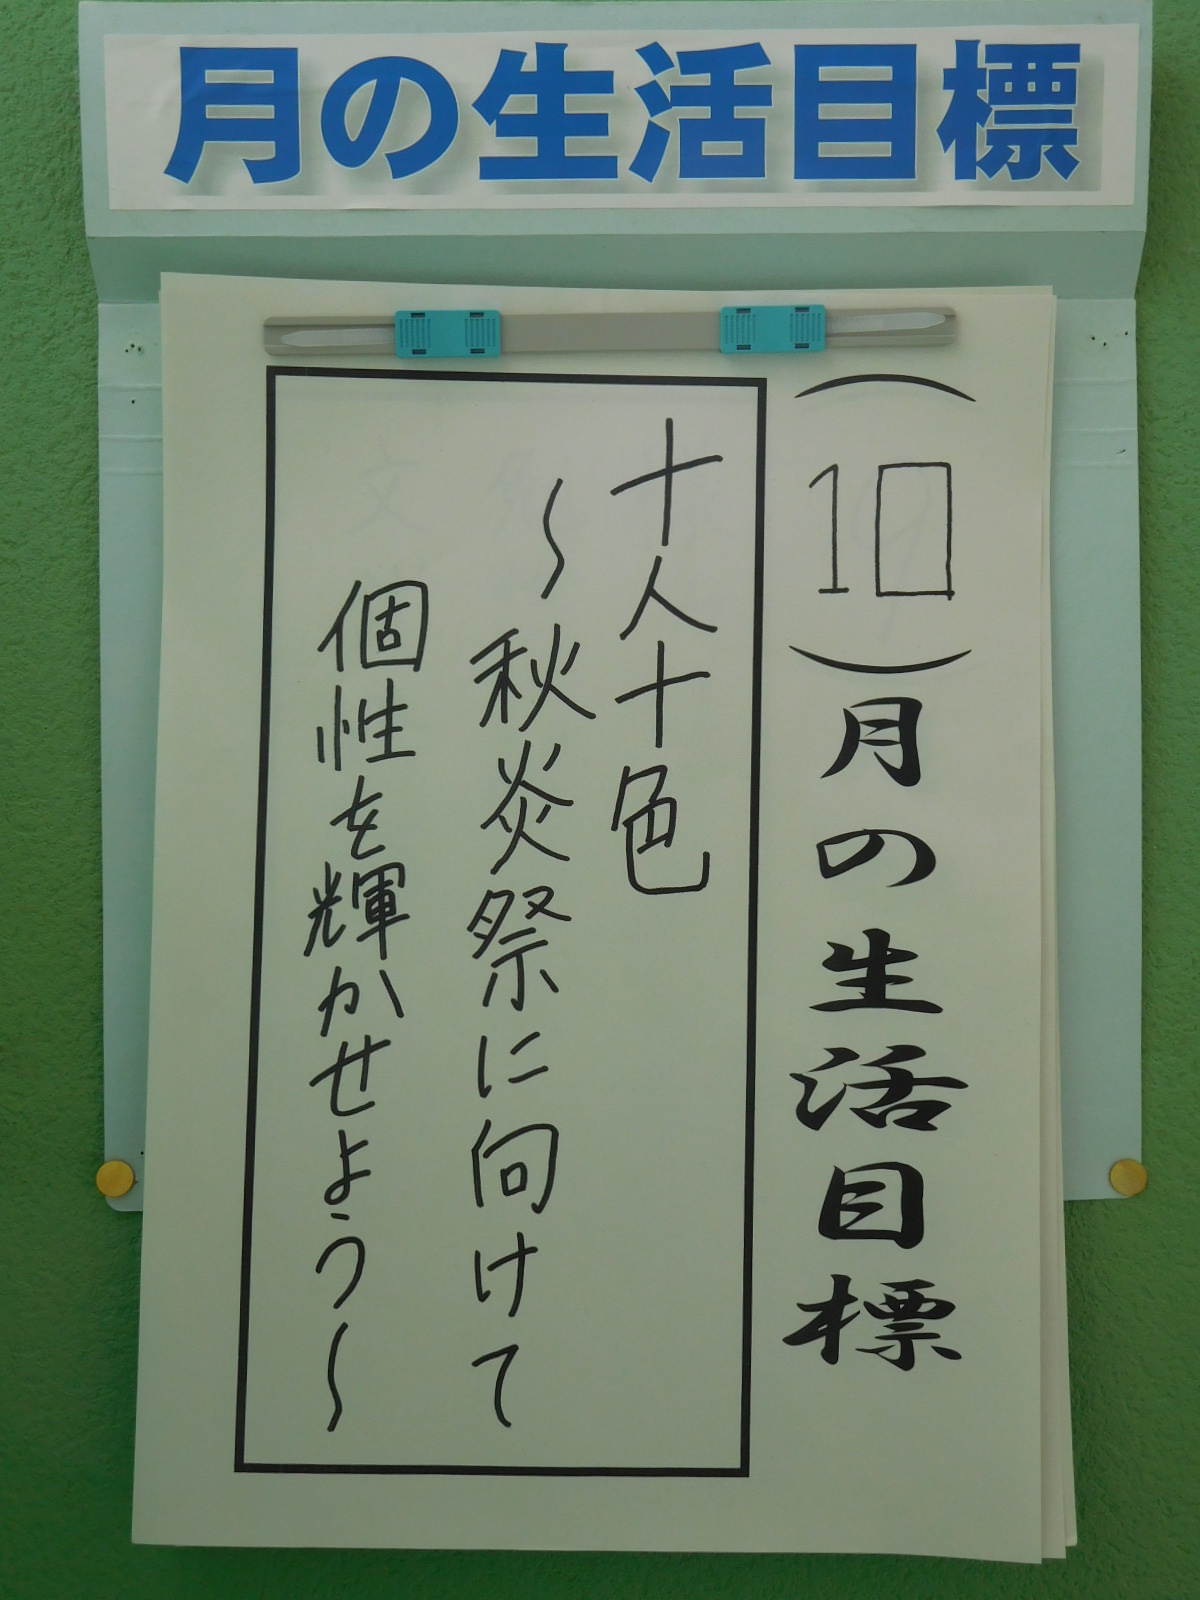 月の生活目標
(10)月の生活目標
十人十色
～秋炎祭に向けて
個性を輝かせよう～